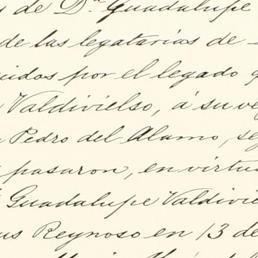 de D.ª Guadalupe
de las legatarias de
uidos por el legado
Valdivielso, á su ve
Pedro del Alamo, se
pasaron, en virtu
Guadalupe Valdivi
us Reynoso en 13 de